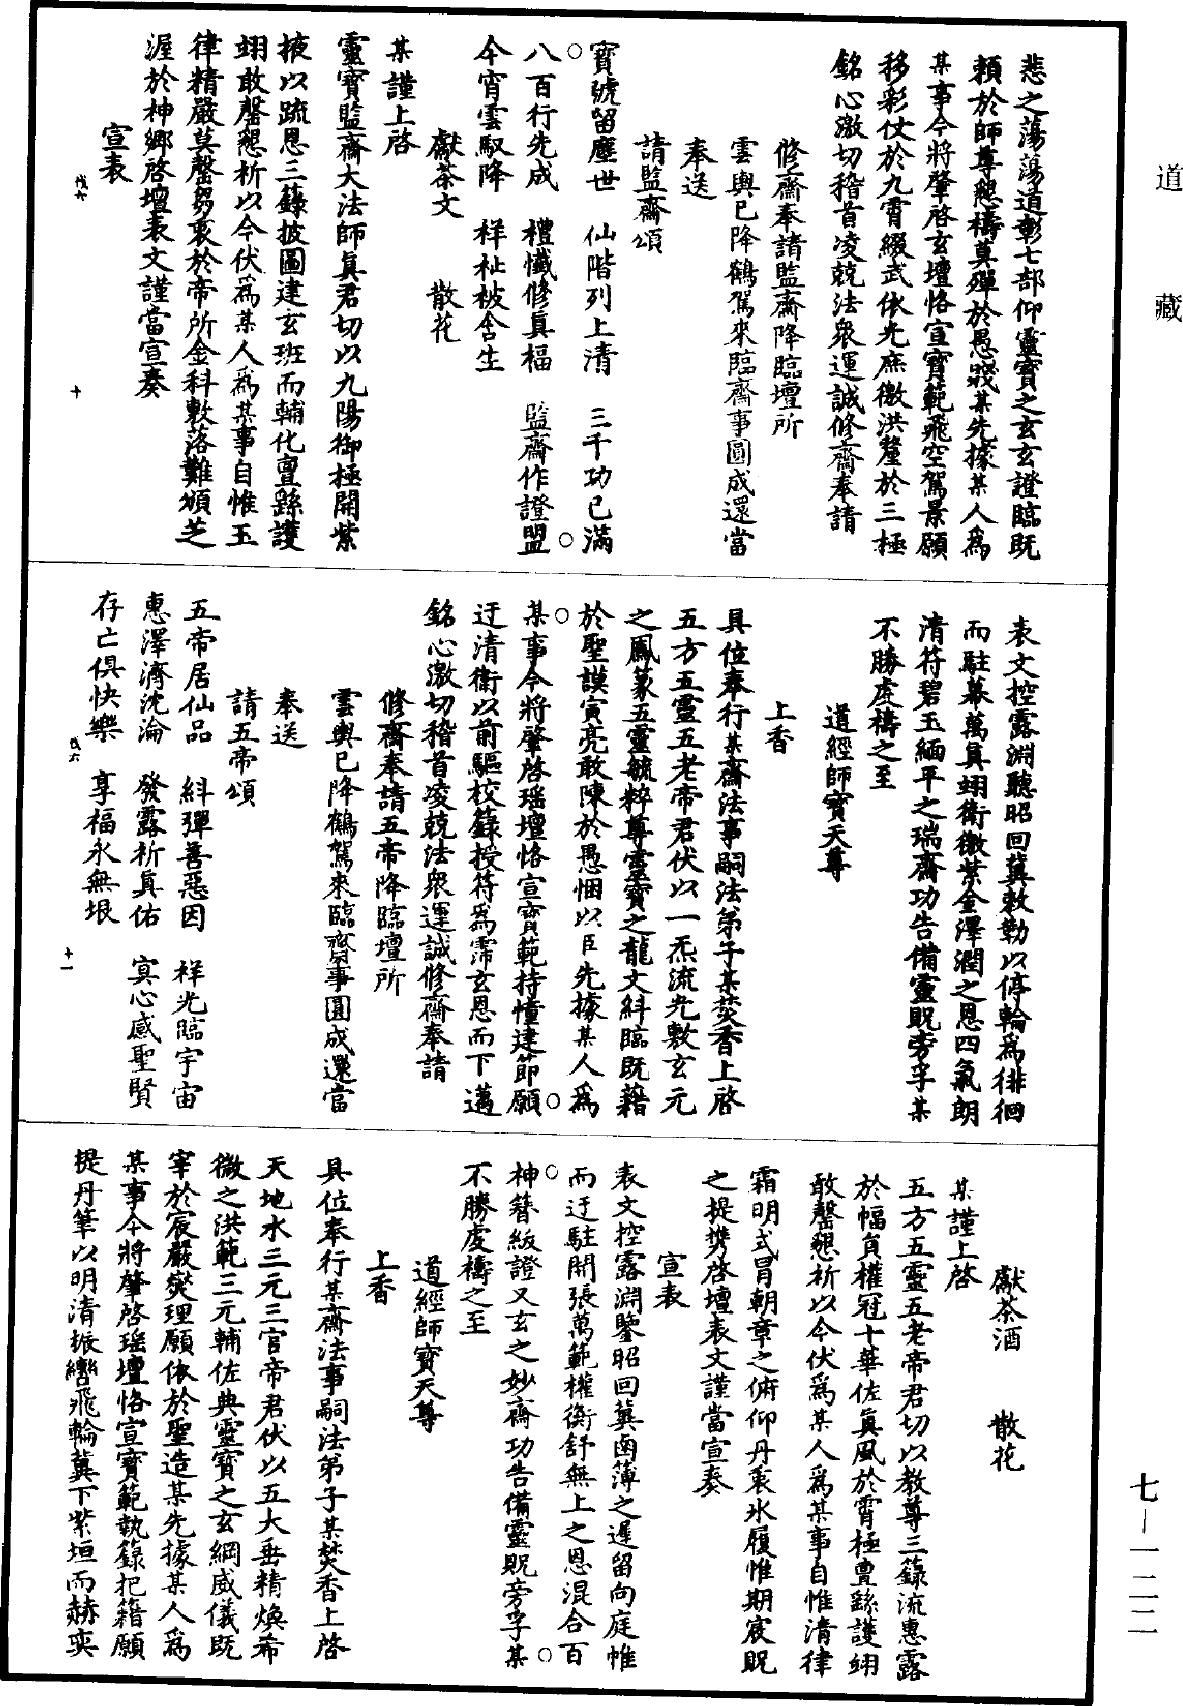 道藏
悲之蕩蕩道彰七部仰靈寶之玄玄證臨既
賴於師尊懇禱莫殫於愚賤某先據某人爲
某事今將肇啓玄壇恪宣寶範飛空駕景願
移彩仗於九霄綴武依光庶徼洪釐於三極
銘心激切稽首凌兢法衆運誠修齋奉請
修齋奉請監齋降臨壇所
雲輿已降鶴駕來臨齋事圓成還當
奉送
請監齋頌
寶號留塵世　仙階列上清　三千功已滿
八百行先成　禮懺修真福　監齋作證盟
今宵雲馭降　祥祉被含生
獻茶文　散花
某謹上啓
靈寶監齋大法師真君切以九陽御極開紫
掖以疏恩三籙披圖建玄班而輔化亶繇護
翊敢罄懇祈以今伏爲某人爲某事自惟玉
律精嚴莫罄芻衷於帝所金科敷落難頒芝
渥於神鄉啓壇表文謹當宣奏
宣表
十
表文控露淵聽昭回冀敕勒以停輪爲徘徊
而駐幕萬真翊衛徵紫金澤潤之恩四氣朗
清符碧玉緬平之瑞齋功告備靈貺旁孚某
不勝虔禱之至
道經師寶天尊
上香
具位奉行某齋法事嗣法弟子某焚香上啓
五方五靈五老帝君伏以一炁流光敷玄元
之鳳篆五靈毓粹尊靈寶之龍文糾臨既藉
於聖謨寅亮敢陳於愚悃以臣先據某人爲
某事今將肇啓瑤壇恪宣寶範持幢建節願
迂清衛以前驅校籙授符爲霈玄恩而下邁
銘心激切稽首凌兢法衆運誠修齋奉請
修齋奉請五帝降臨壇所
雲輿已降鶴駕來臨齋事圓成還當
奉送
請五帝頌
五帝居仙品　糾彈善惡因　祥光臨宇宙
惠澤濟沈淪　發露祈真佑　寘心感聖賢
存亡俱快樂　享福永無垠
十一
獻茶酒　散花
某謹上啓
五方五靈五老帝君切以教尊三籙流惠露
於幅員權冠十華佐真風於霄極亶繇護翊
敢罄懇祈以今伏爲某人爲某事自惟清律
霜明式冒朝章之俯仰丹衷冰履惟期宸貺
之提携啓壇表文謹當宣奏
宣表
表文控露淵鑒昭回冀鹵簿之遲留向庭帷
而迂駐開張萬範權衡舒無上之恩混合百
神簪紱證又玄之妙齋功告備靈貺旁孚某
不勝虔禱之至
道經師寶天尊
上香
具位奉行某齋法事嗣法弟子某焚香上啓
天地水三元三官帝君伏以五大垂精煥希
微之洪範三元輔佐典靈寶之玄綱威儀既
宰於宸嚴爕理願依於聖造某先據某人爲
某事今將肇啓瑤壇恪宣寶範執籙把籍願
提丹筆以明清振轡飛輪冀下紫垣而赫奕
七—一二二